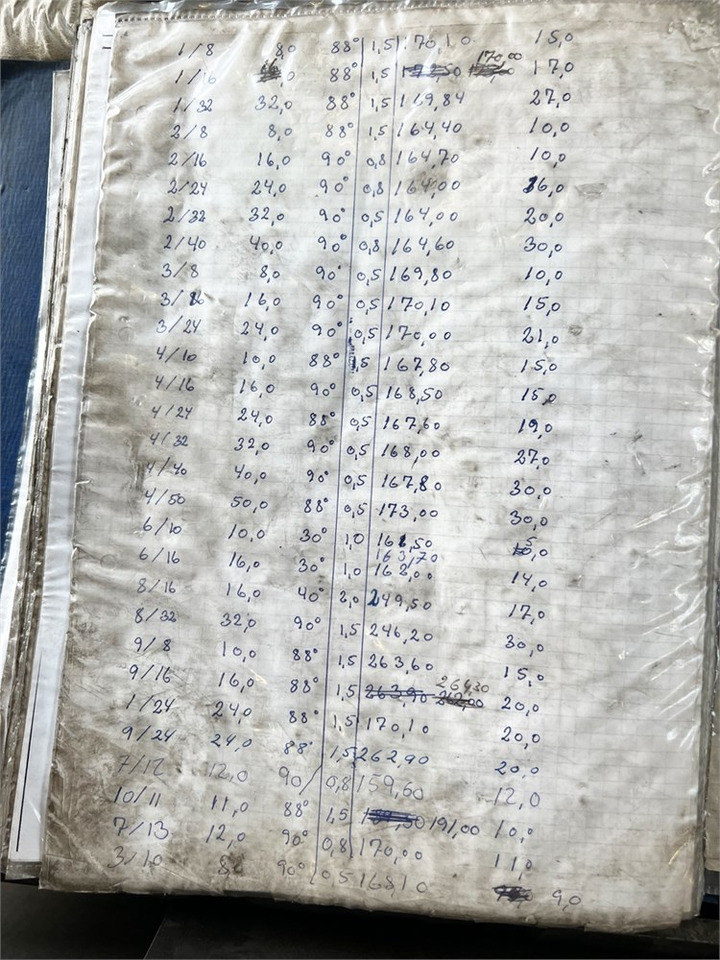 1/8 8,0 88° 1,5 170,10 15,0
1/16 16,0 88° 1,5 170,00 17,0
1/32 32,0 88° 1,5 169,84 27,0
2/8 8,0 88° 1,5 164,40 10,0
2/16 16,0 90° 0,8 164,70 10,0
2/24 24,0 90° 0,8 164,00 16,0
2/32 32,0 90° 0,5 164,00 20,0
2/40 40,0 90° 0,8 164,60 30,0
3/8 8,0 90° 0,5 169,80 10,0
3/16 16,0 90° 0,5 170,10 15,0
3/24 24,0 90° 0,5 170,00 21,0
4/10 10,0 88° 1,5 167,80 15,0
4/16 16,0 90° 0,5 168,50 15,0
4/24 24,0 88° 0,5 167,60 19,0
4/32 32,0 90° 0,5 168,00 27,0
4/40 40,0 90° 0,5 167,80 30,0
4/50 50,0 88° 0,5 173,00 30,0
6/10 10,0 30° 1,0 161,50 15,0
163,70
6/16 16,0 30° 1,0 162,00 14,0
8/16 16,0 40° 2,0 249,50 17,0
8/32 32,0 90° 1,5 246,20 30,0
9/8 10,0 88° 1,5 263,60 15,0
9/16 16,0 88° 1,5 263,90 264,30 20,0
1/24 24,0 88° 1,5 170,10 20,0
9/24 24,0 88° 1,5 262,90 20,0
7/12 12,0 90 0,8 159,60 12,0
10/11 11,0 88° 1,5 191,00 10,0
7/13 12,0 90° 0,8 170,00 11,0
3/10 90° 0,5 168,10 9,0